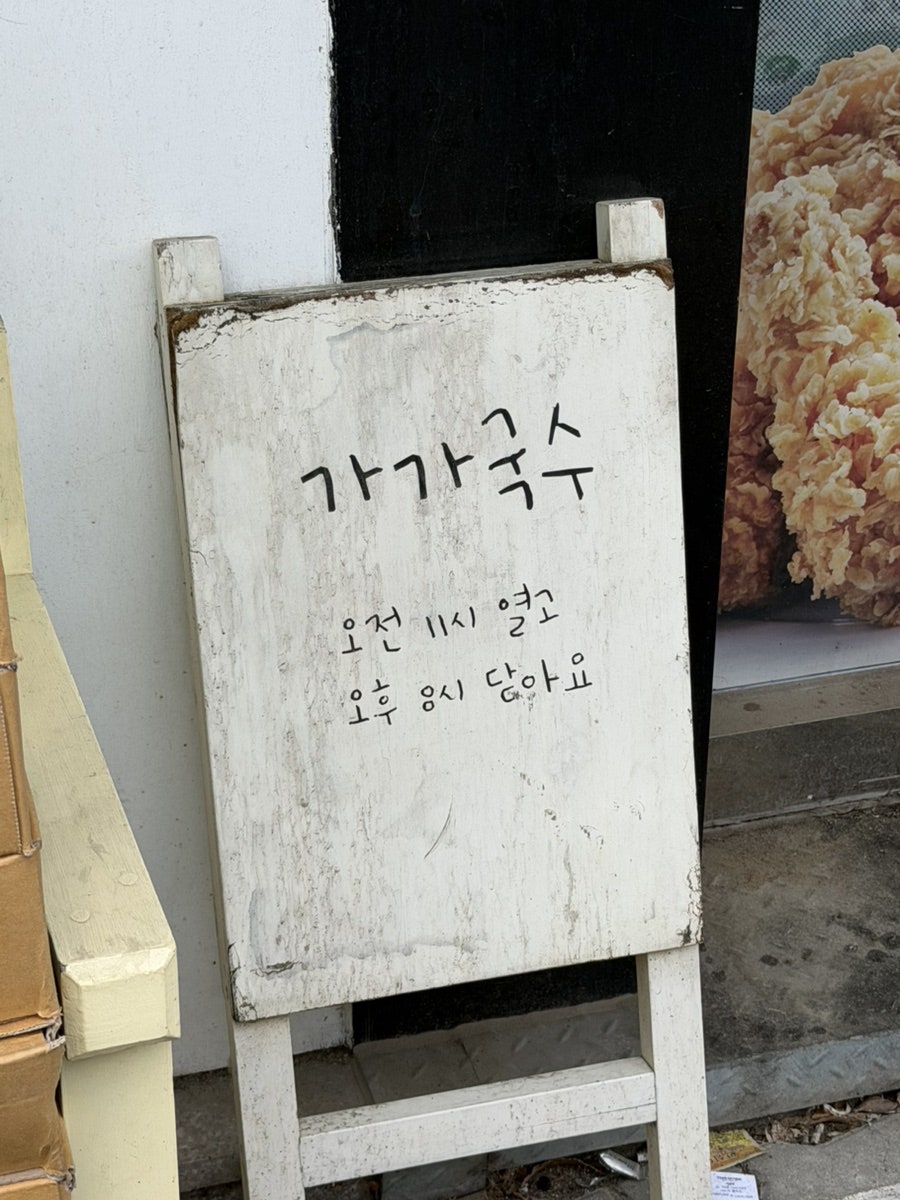 가가국수
오전 11시 열고
오후 8시 닫아요